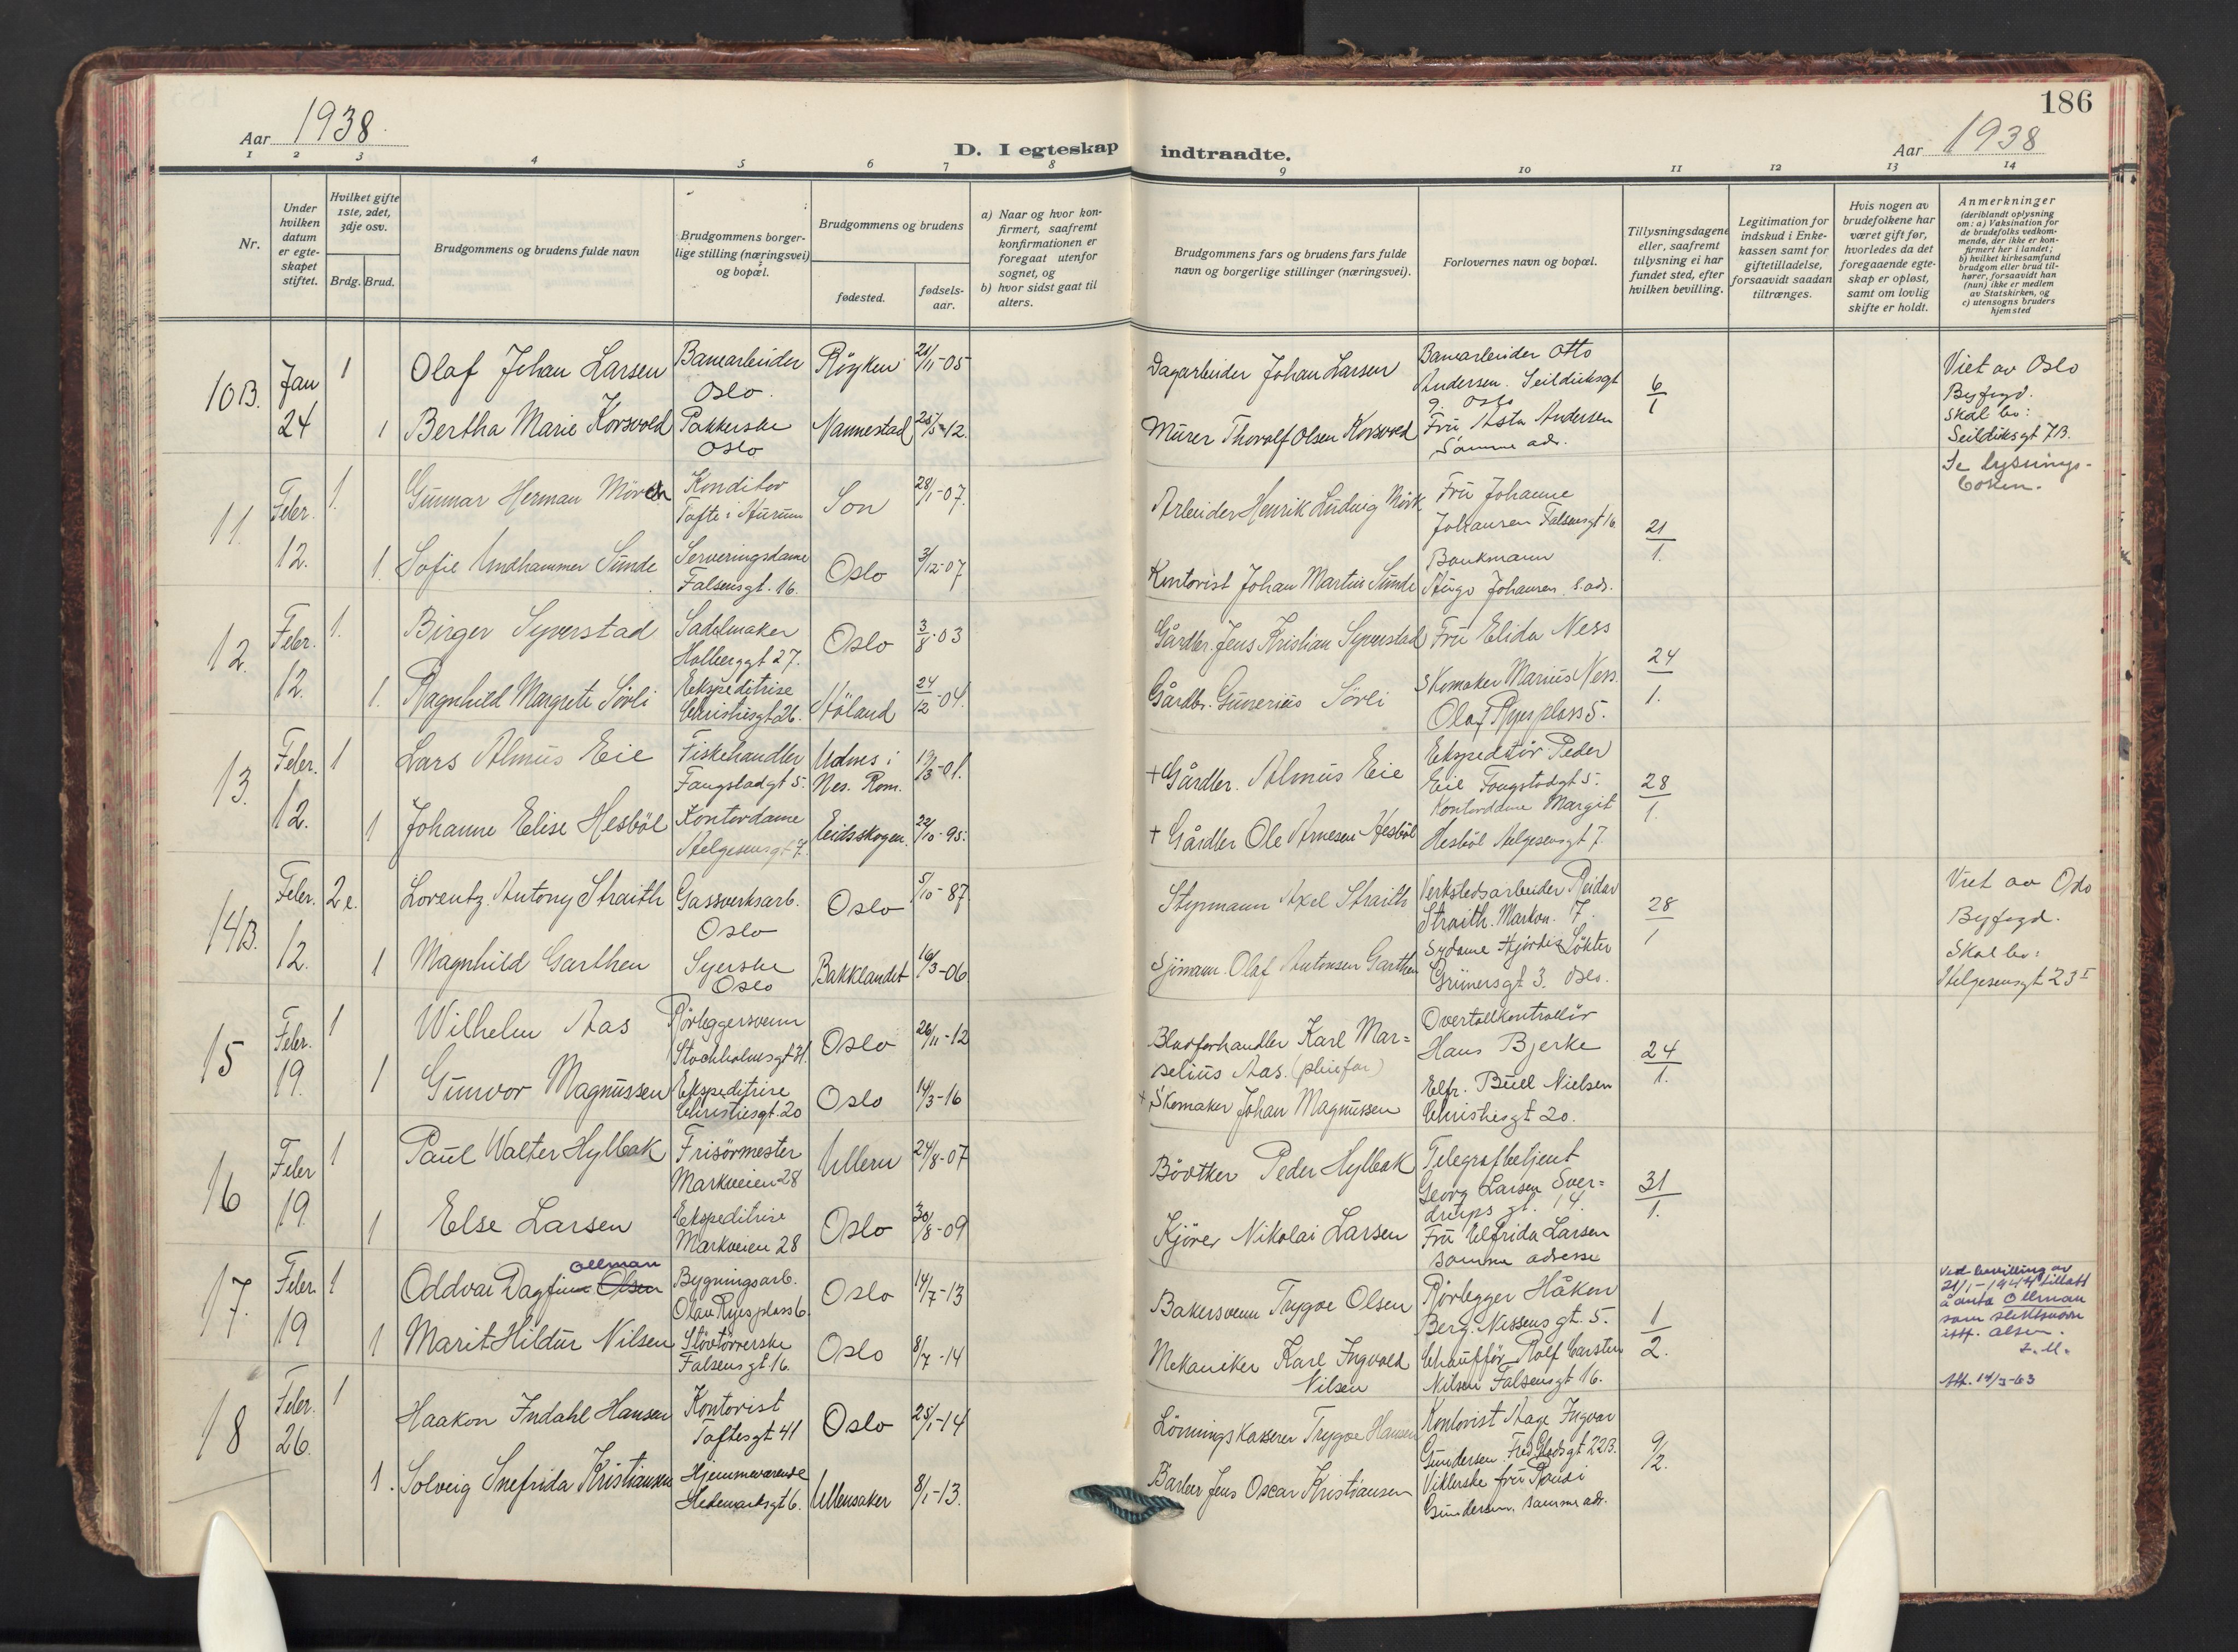 186
Aar 1938.
Aar 1938
D. I egteskap indtraadte.
1 2 3 4 5 6 7 8 9 10 11 12 13 14
Nr.
Under hvilken datum er egte-skapet stiftet.
Hvilket gifte 1ste, 2det, 3dje osv.
Brdg. Brud.
Brudgommens og brudens fulde navn
Brudgommens borger-lige stilling (næringsvei) og bopæl.
Brudgommens og brudens
fødested.
fødsels-aar.
a) Naar og hvor kon-firmert, saafremt konfirmationen er foregaat utenfor sognet, og
b) hvor sidst gaat til alters.
Brudgommens fars og brudens fars fulde navn og borgerlige stillinger (næringsvei).
Forlovernes navn og bopæl.
Tillysningsdagene eller, saafremt tillysning ei har fundet sted, efter hvilken bevilling.
Legitimation for indskud i Enke-kassen samt for giftetilladelse, forsaavidt saadan tiltrænges.
Hvis nogen av brudefolkene har været gift før, hvorledes da det foregaaende egte-skap er opløst, samt om lovlig skifte er holdt.
Anmerkninger
(deriblandt oplysning om: a) Vaksination for de brudefolks vedkom-mende, der ikke er kon-firmert her i landet;
b) hvilket kirkesamfund brudgom eller brud til-hører, forsaavidt han (hun) ikke er medlem av Statskirken, og
c) utensogns bruders hjemsted
10B. Jan 24
1 Olaf Johan Larsen Banearbeider Oslo. Røyken 21/11-05
Dagarbeider Johan Larsen
Banearbeider Otto Andersen. Seilduksgt 9. Oslo
6/1
Viet av Oslo Byfogd. Skal bo: Seilduksgt 7B. Se lysnings-boken.
1 Bertha Marie Korsvold Pakkerske Oslo Nannestad 25/5-12.
Murer Thorolf Olsen Korsvold
Fru Asta Andersen Samme adr.
11. Febr. 12.
1. Gunnar Herman Mörch Konditor Tofte i Hurum Son 28/1-07.
Arbeider Henrik Ludvig Mörk
Fru Johanne Johansen Falsensgt 16
21/1.
1. Sofie Undhammer Sunde Serveringsdame Falsensgt. 16. Oslo 3/12-07
Kontorist Johan Martin Sunde
Bankmann Hugo Johansen s.ads.
12. Febr. 12.
1. Birger Syverstad Sadelmaker Holberggt 27. Oslo 3/8-03
Gårdbr. Jens Kristian Syverstad
Fru Elida Ness
24/1.
1. Ragnhild Margrete Sörli Ekspeditrise Christiesgt 26. Höland 24/12-04.
Gårdbr. Gunerius Sörli
Skomaker Marius Ness. Olaf Ryes plass 5.
13. Febr. 12.
1 Lars Almus Eie Fiskehandler Fougstadgt 5. Udnes i Nes. Rom. 19/3-01.
+ Gårdbr. Almus Eie
Ekspeditör Peder Eie Fougstadgt 5.
28/1.
1 Johanne Elise Hesböl Kontordame Helgesensgt 7. Eidsskogen. 22/10-95.
+ Gårdbr Ole Arnesen Hesböl
Kontordame Margit Hesböl Helgesensgt 7.
14B. Febr. 12.
2e. Lorentz Antony Straith Gassverksarb. Oslo Oslo 5/10-87
Styrmann Axel Straith
Verkstedsarbeider Reidar Straith. Markvn. 7.
28/1
Viet av Oslo Byfogd. Skal bo: Helgesensgt 23 I
1 Magnhild Garthen Syerske Oslo Bakklandet 16/3-06
Sjömann Olaf Antonsen Garthen
Sydame Hjördis Lökter Grünersgt 3. Oslo.
15 Febr. 19.
1 Wilhelm Aas Rörleggersvenn Stockholmsgt 31. Oslo 26/11-12
Bladforhandler Karl Mar=selius Aas. (pleiefar)
Overtollkontrollör Hans Bjerke
24/1.
1 Gunvor Magnussen Ekspeditrise Christiesgt. 20 Oslo 14/3-16
+ Skomaker Johan Magnussen
Elfr. Buel Nielsen Christiesgt 20.
16 Febr 19.
1 Paul Walter Hylbak Frisörmester Markveien 28 Ullern 24/8-07
Bödtker Peder Hylbak
Telegrafbetjent Georg Larsen Sver=drups gt. 14.
31/1.
1 Else Larsen Ekspeditrise Markveien 28 Oslo 30/8-09
Kjörer Nikolai Larsen
Fru Elfrida Larsen samme adresse
17. Febr 19
1 Oddvar Dagfinn Olsen Ollman Bygningsarb. Olav Ryes plass 6. Oslo 14/7-13
Bakersvenn Trygve Olsen
Rörlegger Håkon Berg. Nissens gt. 5.
1/2.
Ved bevilling av 21/1-1944 tillatt å anta Ollman som slektsnavn istf. Olsen.
14/3-63
1 Marit Hildur Nilsen Stövtörrerske Falsensgt 16. Oslo 8/7-14
Mekaniker Karl Ingvald Nilsen
Chaufför Rolf Carsten Nilsen Falsensgt 16.
18 Febr. 26.
1 Haakon Indahl Hansen Kontorist Toftesgt 41 Oslo 25/1-14
Lönningskasserer Trygve Hansen
Kontorist Aage Ingvar Gundersen. Fred Gladsgt 22B.
9/2.
1. Solveig Snefrida Kristiansen Hjemmeværende Hedemarksgt 6. Ullensaker 8/1-13.
Barber Jens Oscar Kristiansen
Viklerske fru Randi Gundersen, samme adr.